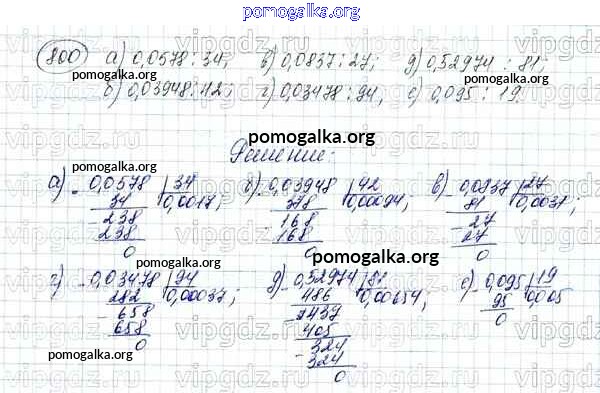 pomogalka.org
800 а) 0,0578 : 34; в) 0,0837 : 27; д) 0,52974 : 81;
pomogalka.org
б) 0,03948 : 42; г) 0,03478 : 94; е) 0,095 : 19.
pomogalka.org
Решение:
а) 0,0578 | 34 б) 0,03948 | 42 в) 0,0837 | 27
34 0,0017; 378 0,00094; 81 0,0031;
238 168 27
238 168 27
0 0 0
г) 0,03478 | 94 д) 0,52974 | 81 е) 0,095 | 19
282 0,00037; 486 0,00654; 95 0,005
658 437 0
658 405
0 324
324
0
pomogalka.org
vipgdz.ru